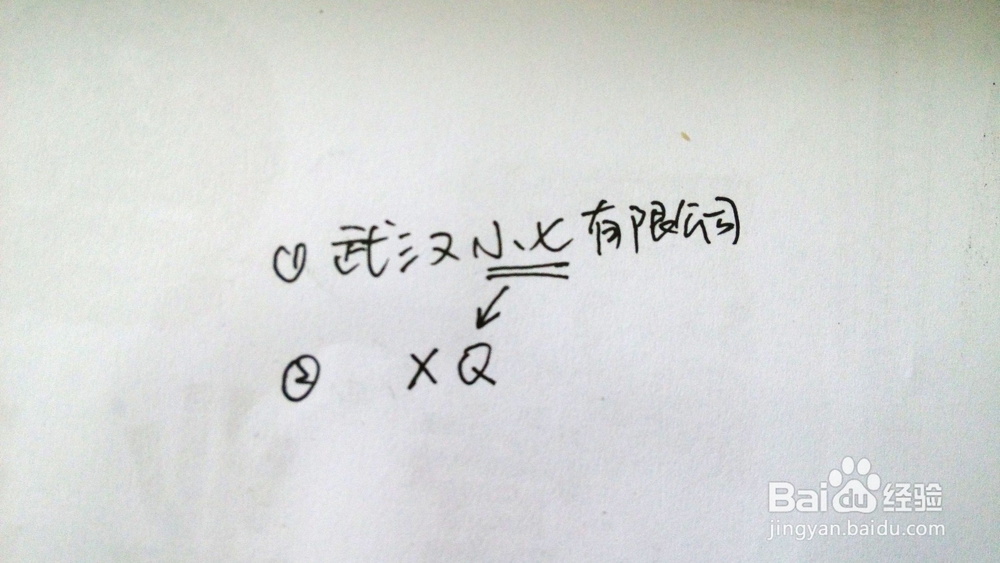 ① 武汉小七有限公司
② XQ
Baidu经验
jingyan.baidu.com